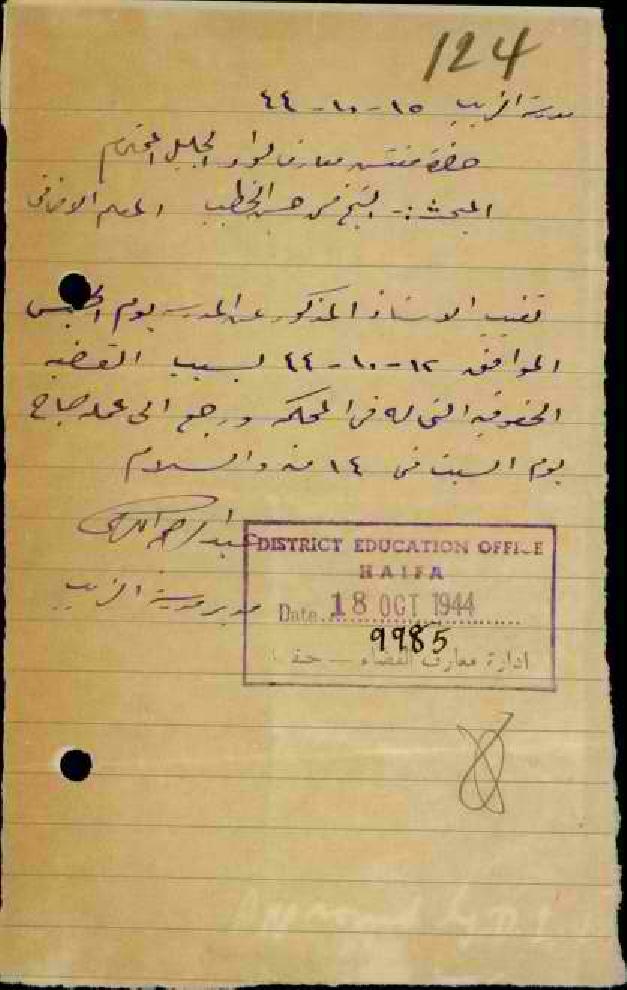 124
مدرسة الزيب ١٥-١٠-٤٤
حضرة مفتش معارف لواء الجليل المحترم
المبحث :- الشيخ حسن الخطيب المعلم الاضافي
تغيب الاستاذ المذكور عن المدرسه يوم الخميس
الموافق ١٢-١٠-٤٤ بسبب القضيه
الحقوقيه التي له في المحكمه ورجع الى عمله صباح
يوم السبت في ١٤ منه والسلام
مدير مدرسة الزيب
DISTRICT EDUCATION OFFICE
HAIFA
Date 18 OCT 1944
9985
ادارة معارف القضاء -